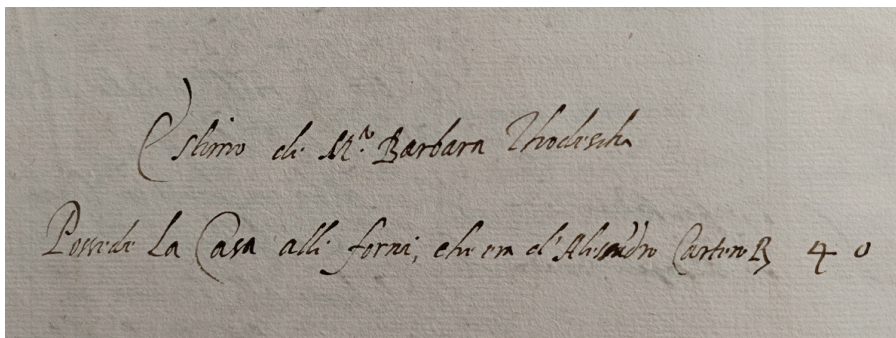 Estimo di M.ª Barbara Thodescha
Possede La Casa alli forni, che era d'Alessandro Cartero R 4 0